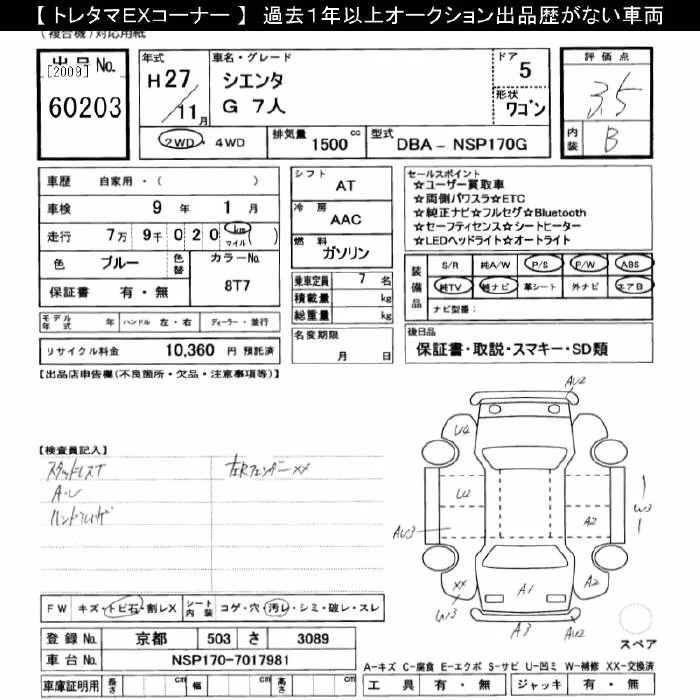 【 トレタマEXコーナー 】 過去1年以上オークション出品歴がない車両
(複合機)対応用紙
出品No.
[2009]
60203
年式
H27
11月
車名・グレード
シエンタ
G 7人
ドア
5
形状
ワゴン
2WD ・ 4WD
排気量 1500 cc
型式 DBA - NSP170G
評価点
3.5
内装 B
車歴 自家用・( )
車検 9 年 1 月
走行 7万 9千 0 2 0 km マイル ( )
色 ブルー 色替 カラーNo. 8T7
保証書 有・無
モデル年式 年 ハンドル 左・右 ディーラー・並行
リサイクル料金 10,360 円 預託済
シフト AT
冷房 AAC
燃料 ガソリン
乗車定員 7 名
積載量 kg
総重量 kg
名変期限
月 日
セールスポイント
☆ユーザー買取車
☆両側パワスラ☆ETC
☆純正ナビ☆フルセグ☆Bluetooth
☆セーフティセンス☆シートヒーター
☆LEDヘッドライト☆オートライト
装備品
S/R 純A/W P/S P/W ABS
純TV 純ナビ 革シート 外ナビ エアB
ナビ型番:
後日品
保証書・取説・スマキー・SD類
【出品店申告欄(不良箇所・欠品・注意事項等)】
【検査員記入】
スタッドレスT
A・U
左Rフェンダー XX
AU2
U4
U2
AU3
W3
A2
XX
W13
A1
A2
A3
AU2
スペア
FW キズ・トビ石・割レX シート内装 コゲ・穴・汚レ・シミ・破レ・スレ
登録No. 京都 503 さ 3089
車台No. NSP170-7017981
車庫証明用 長さ cm 幅 cm 高さ cm
A-キズ C-腐食 E-エクボ S-サビ U-凹ミ W-補修 XX-交換済
工具 有・無 ジャッキ 有・無